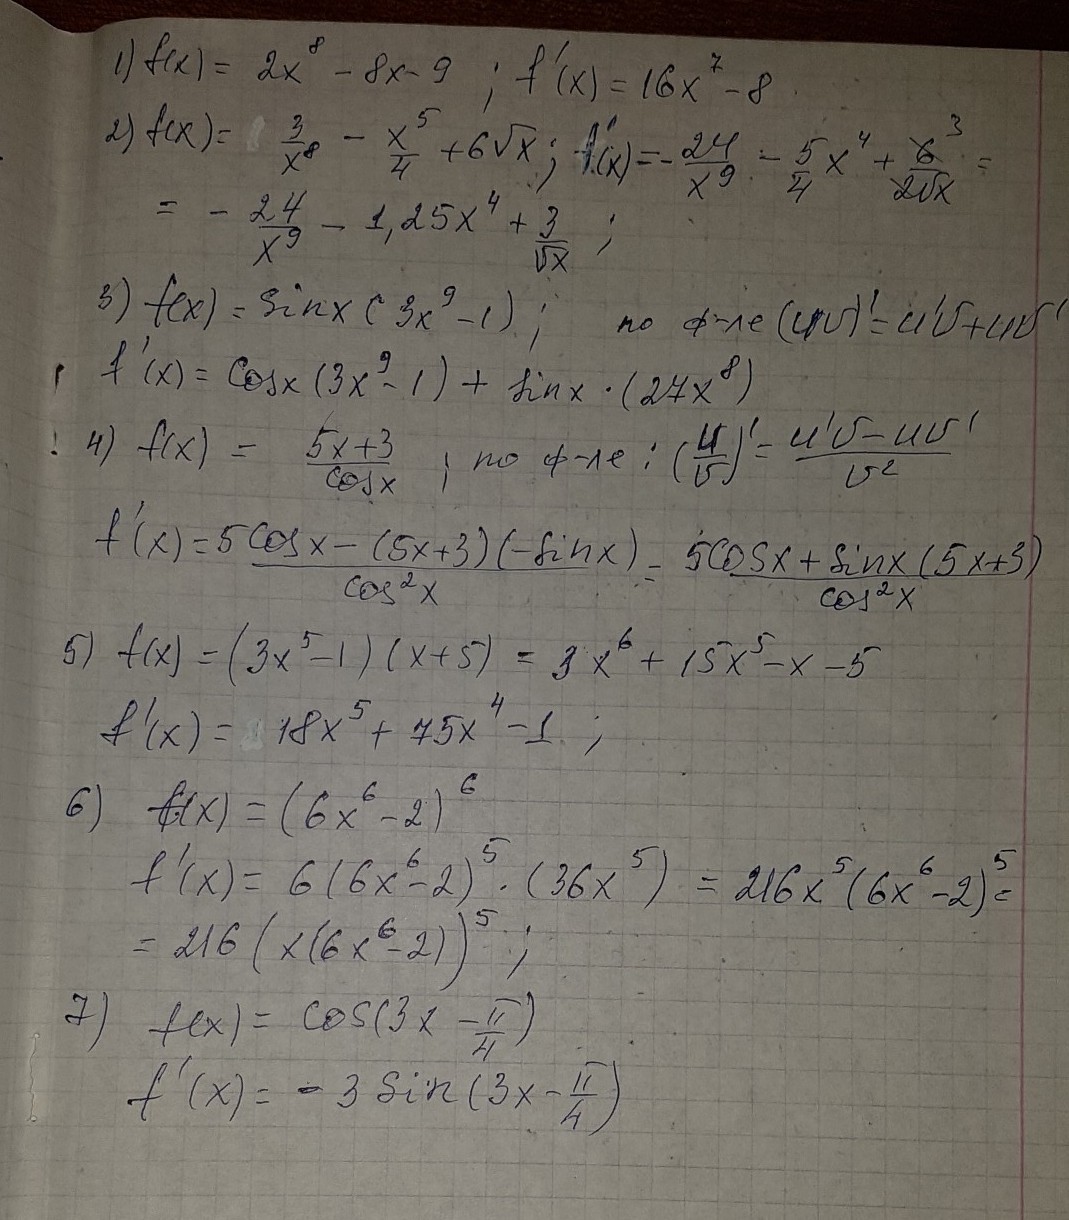 1) f(x) = 2x⁸ - 8x - 9 ; f'(x) = 16x⁷ - 8
2) f(x) = 3/x⁸ - x⁵/4 + 6√x ; f'(x) = - 24/x⁹ - 5/4 x⁴ + 6³/2√x =
= - 24/x⁹ - 1,25x⁴ + 3/√x ;
3) f(x) = sinx (3x⁹ - 1) ; по ф-ле (uv)' = u'v + uv'
f'(x) = cosx (3x⁹ - 1) + sinx · (27x⁸)
! 4) f(x) = 5x+3/cosx ; по ф-ле : (u/v)' = u'v - uv'/v²
f'(x) = 5cosx - (5x+3)(-sinx)/cos²x = 5cosx + sinx (5x+3)/cos²x
5) f(x) = (3x⁵ - 1)(x+5) = 3x⁶ + 15x⁵ - x - 5
f'(x) = 18x⁵ + 75x⁴ - 1 ;
6) f(x) = (6x⁶ - 2)⁶
f'(x) = 6(6x⁶ - 2)⁵ · (36x⁵) = 216x⁵(6x⁶ - 2)⁵ =
= 216 (x(6x⁶ - 2))⁵ ;
7) f(x) = cos(3x - π/4)
f'(x) = - 3 sin (3x - π/4)